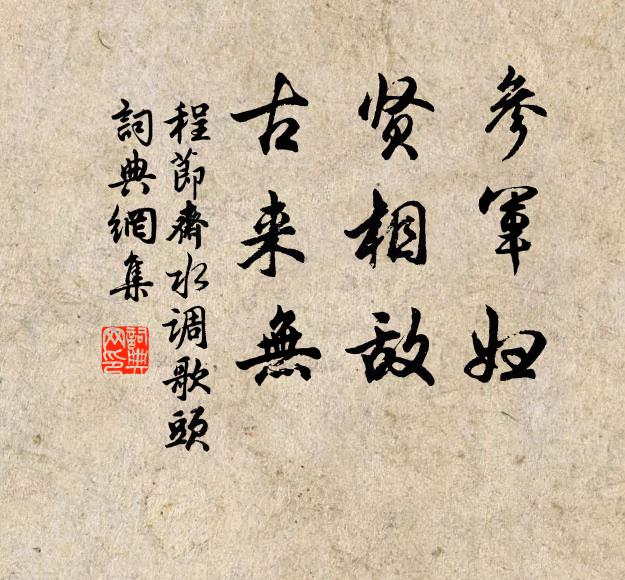 参軍妇
贤相敌
古来無
程節齋水调歌頭
詞典網集
詞典
网印